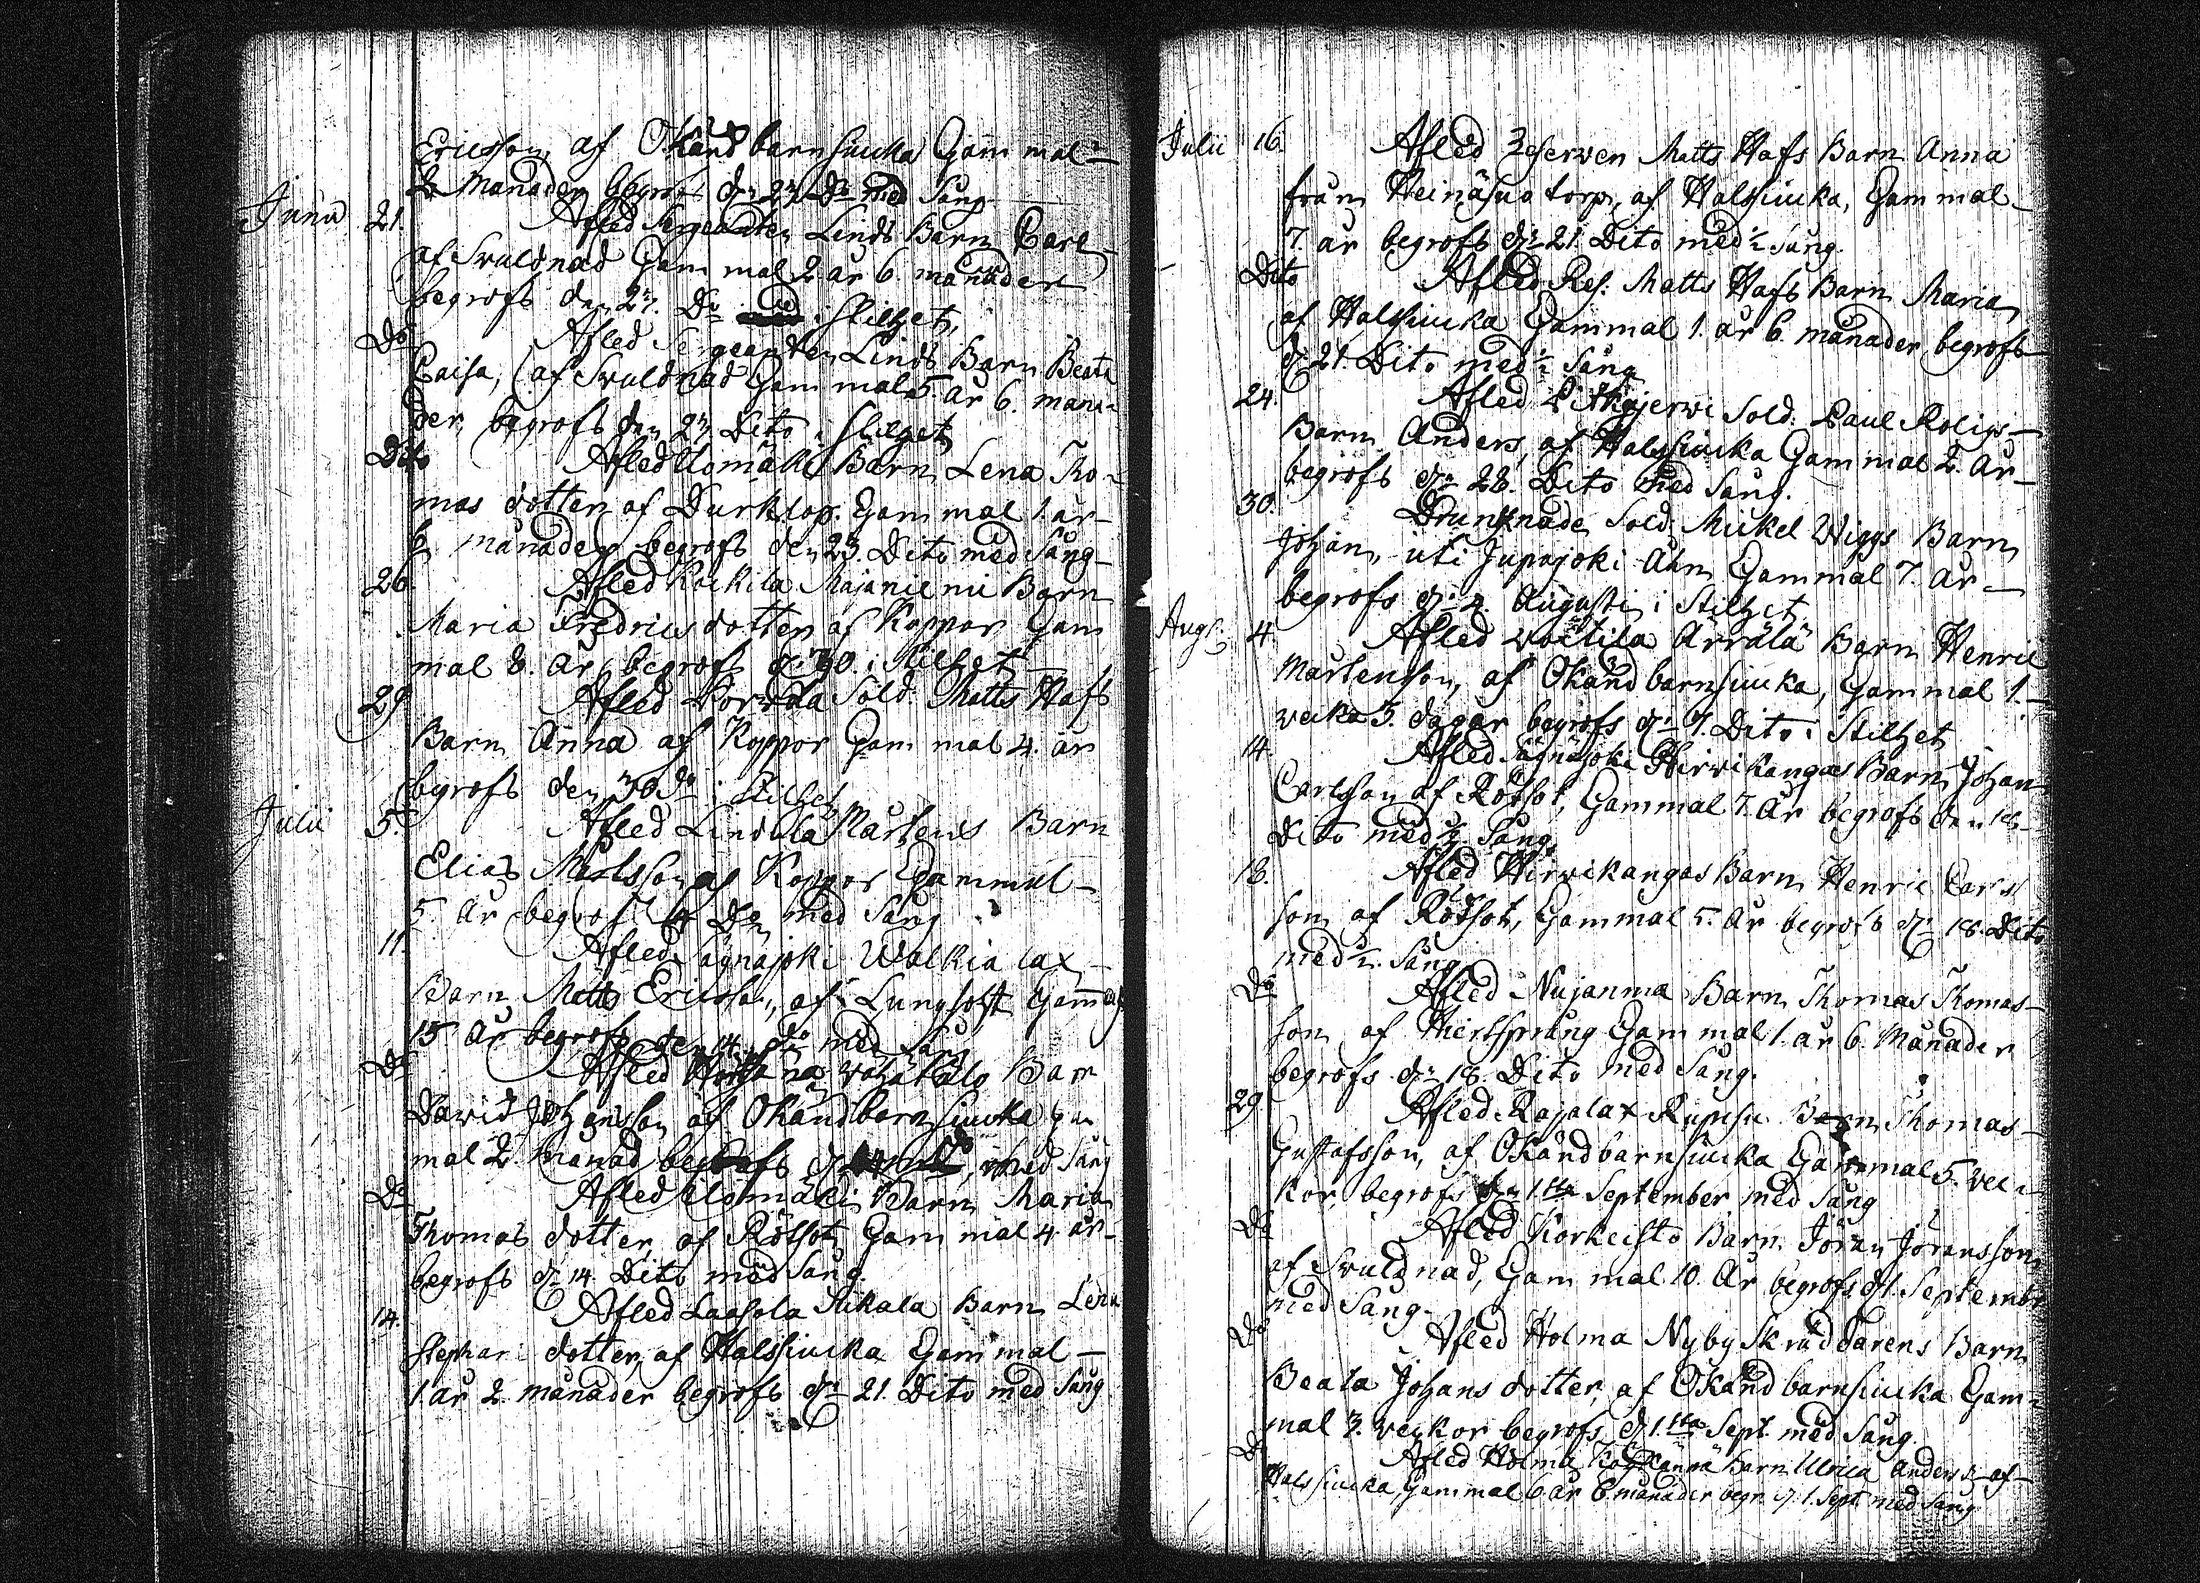 Ericsson, af Okänd barnsiuka Gam mal
2 Månader begrofs dn 27 Do med Sång
Junii 21. Afled Sergeanten Linds Barn Carl
af Swuldnad Gam mal 2 år 6. månader
begrofs den 27. Do i Stilhet,
Do Afled Sergeanten Linds Barn Beata
Caisa, af Swuldnad Gam mal 5. år 6. måna-
der, begrofs den 27 Dito i Stilhet
Dito Afled Uomäki Barn Lena Tho-
mas dotter af Durklop. Gam mal 1. år
6 månader begrofs den 23. Dito med Sång
26. Afled Majaniemi Barn
Maria Fredrics dotter af Koppor Gam
mal 8. år, begrofs d. 30. i Stilhet
29 Afled Sold. Matts Hafs
Barn Anna af Koppor Gam mal 4. år
begrofs den 30 do i Stilhet
Julii 5. Afled Lindula Mårtens Barn
Elias Mårtsson af Koppor Gammal
5. år begrofs Do med Sång
11. Afled ägnäjoki Walkialax
Barn Matts Ericsson, af Lungsoht Gammal
15 år begrofs den 14 do med Sång
Do Afled Barn
David Johansson af Okänd barnsiuka gam
mal 2. månad begrofs med Sång
Do Afled Uomäki Barn Maria
Thomas dotter, af Rötsot Gam mal 4. år
begrofs dn 14. Dito med Sång.
14. Afled Laasola Sukala Barn Lena
Stephans dotter, af Halssiuka Gam mal
1. år 2. månader begrofs dn 21. Dito med Sång
Julii 16. Afled Reserven Matts Hafs Barn Anna
från Heinäsuo torp, af Halssiuka, Gam mal
7. år begrofs dn 21. Dito med ½ Sång.
Dito Afled Res: Matts Hafs Barn Maria
af Halssiuka Gammal 1. år 6. månader begrofs
d. 21. Dito med ½ Sång
24. Afled Sold. Paul Roligs
Barn Anders, af Halssiuka Gam mal 2. år
begrofs dn 28. Dito med Sång.
30. Drunknade Sold. Mickel Wiggs Barn
Johan, uti Jupajoki Åhn Gammal 7. år
begrofs dn 4. Augusti i Stilhet
Aug: 4. Afled Woitila Ärrälä Barn Henric
Mårtensson, af Okänd barnsiuka, Gammal 1.
vecka 3. dagar begrofs dn 7. Dito i Stilhet
14. Afled ägnäjoki Hirvikangas Barn Johan
Carlsson af Rötsot, Gammal 7. år begrofs den 18
Dito med ½ Sång.
18. Afled Hirvikangas Barn Henric Carls
son af Rötsot, Gammal 5. år begrofs dn 18. Dito
med ½. Sång
Do Afled Nujanma Barn Thomas Thomas-
son, af Hiertsprång Gam mal 1. år 6. Månader
begrofs dn 18. Dito med Sång.
29. Afled Rajalax Rupisu Barn Thomas
Gustafsson, af Okänd barnsiuka Gammal 5. vec-
kor, begrofs dn 1.sta September med Sång
Do Afled Korkeisto Barn Jöran Jöransson
af Swuldnad, Gam mal 10. År begrofs d. 1. Septembr
med Sång.
Do Afled Holma Nyby Skräddarens Barn
Beata Johans dotter, af Okänd barnsiuka Gam-
mal 3. veckor begrofs d. 1.sta Sept. med Sång.
Do Afled Holma Barn Ulrica Anders d. af
Halssiuka, Gammal 6 år 6 månader begr. d. 1. Sept. med Sång